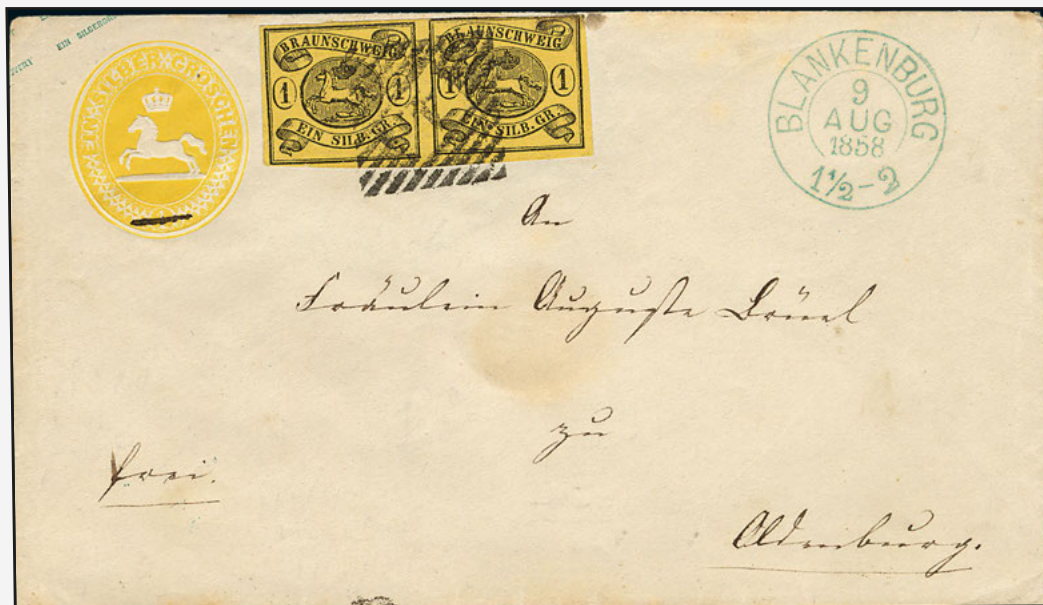 EIN SILBERGR
EIN SILBER GROSCHEN
1
BRAUNSCHWEIG
1 1
EIN SILB. GR.
BRAUNSCHWEIG
1 1
EIN SILB. GR.
BLANKENBURG
9
AUG
1858
1½-2
An
Fräulein Auguste
zu
frei.
Oldenburg.